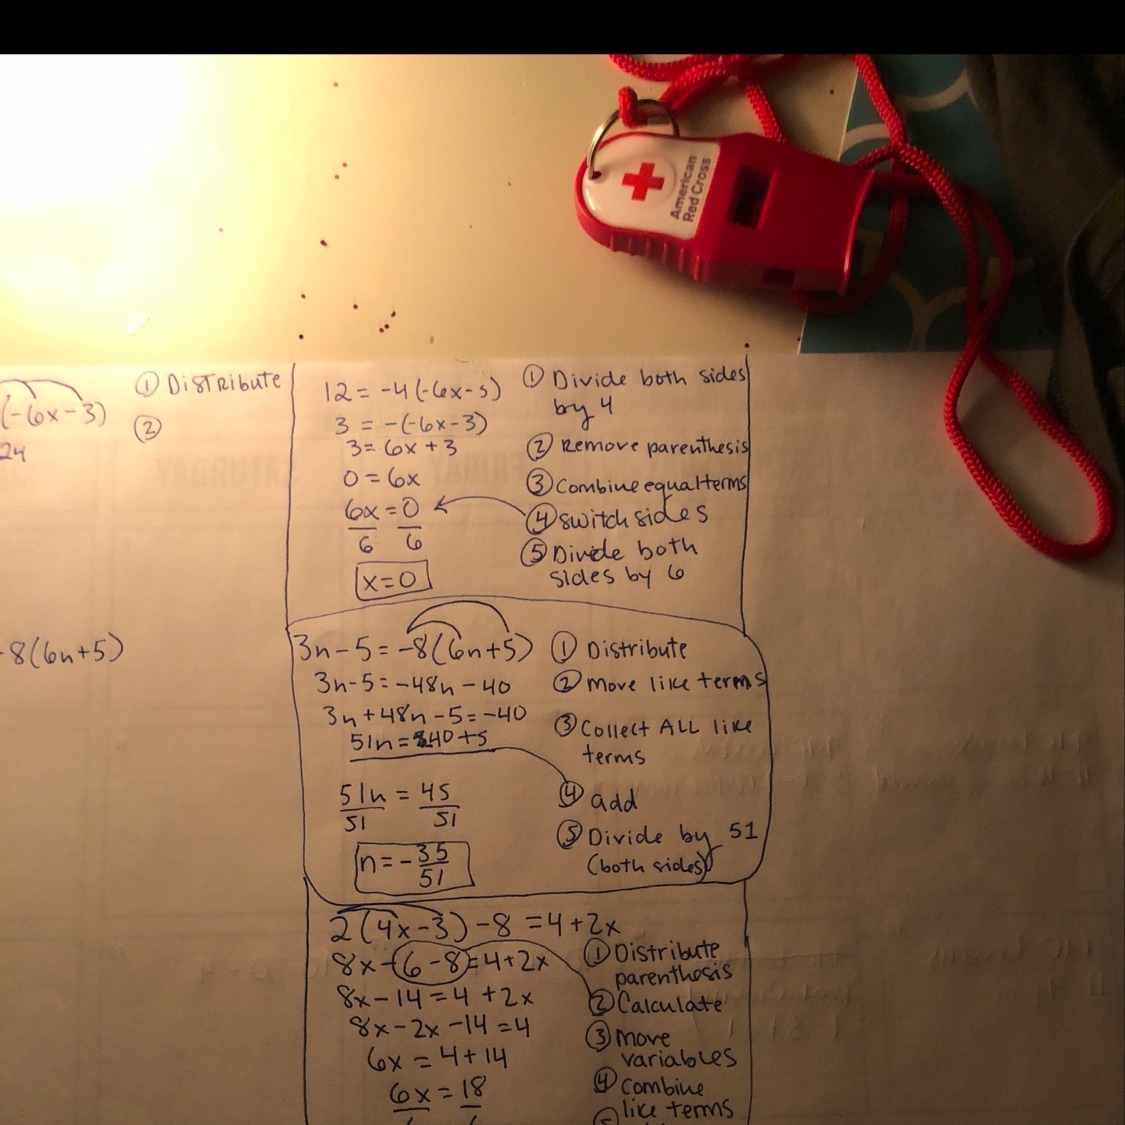 American
Red Cross
(-6x-3)
24
① DISTRIBUTE
②
-8(6n+5)
12 = -4(-6x-3)
3 = -(-6x-3)
3 = 6x+3
0 = 6x
6x = 0
6 6
x=0
① Divide both sides
by 4
② Remove parenthesis
③ Combine equal terms
④ switch sides
⑤ Divide both
sides by 6
3n-5 = -8(6n+5)
3n-5 = -48n-40
3n+48n-5 = -40
51n = -40+5
51n = 45
51 51
n = -35/51
① Distribute
② move like terms
③ Collect ALL like
terms
④ add
⑤ Divide by 51
(both sides)
2(4x-3)-8 = 4+2x
8x-6-8 = 4+2x
8x-14 = 4+2x
8x-2x-14 = 4
6x = 4+14
6x = 18
① Distribute
parenthesis
② Calculate
③ move
variables
④ combine
like terms